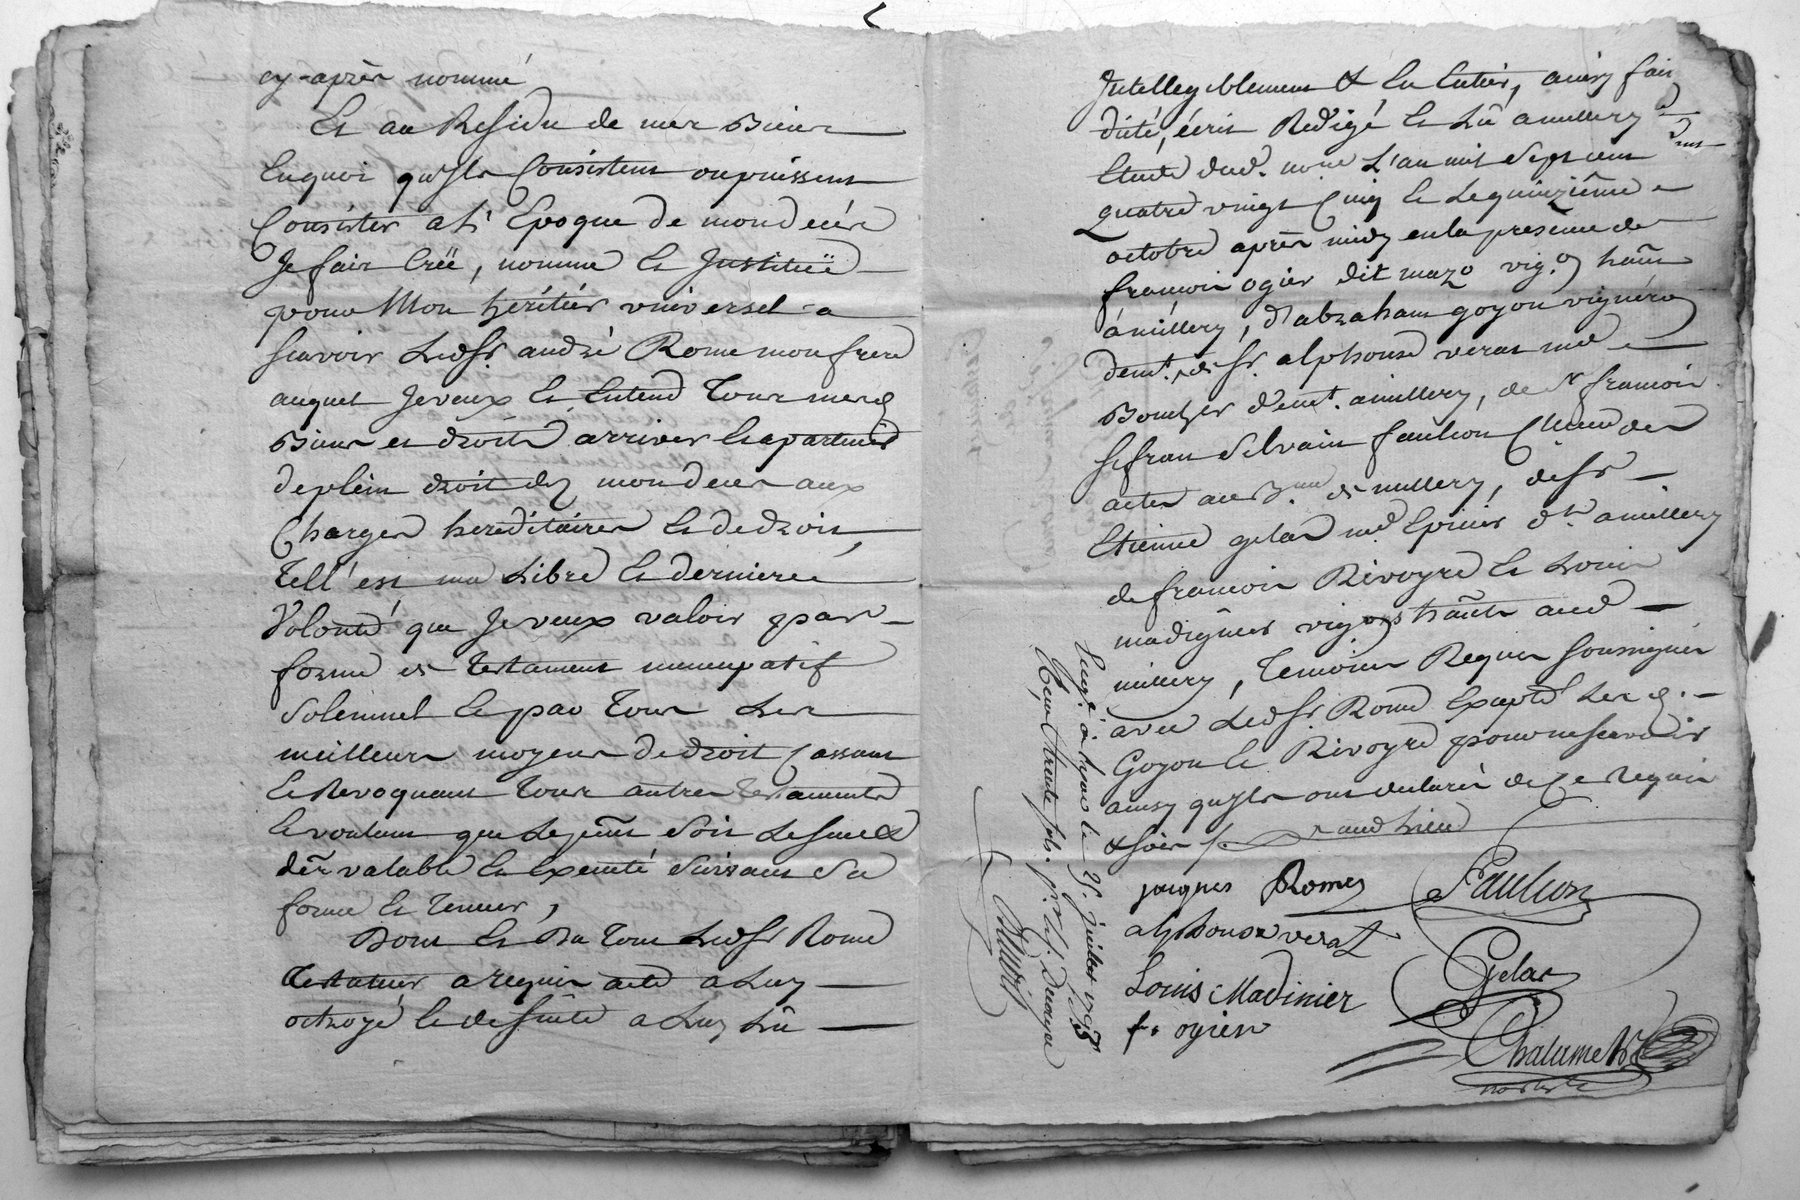 cy-après nommé
Et au Residu de mes Biens
Enquoi qu'ils Consistent oupuissent
Consister a l'Epoque de mondecés
Je fais Créé, nomme et Justituë
pour Mon heritier vniversel a
scavoir Ledsr. andré Rome mon frere
auquel Jeveux et Entend Tous mesd
Biens et droits arriver et apartenir
deplein droit dez mondeces aux
Charges hereditaires et dedroit,
Tell'est ma Libre et derniere
Volonté que Je veux valoir par
forme de Testament nuncupatif
Solemnel et par Tous Les
meilleurs moyens dedroit Cassant
et Revoquant Tous autres Testaments
et voulant que Le pnt Soit Le seul &
der valable et Executé Suivant Sa
forme et Teneur,
Dont et Du Tout Ledsr Rome
Testateur a requis acte a Luy
octroyé et de suite a Luy Lû
Intellegiblement & En Entier, ainsy fait
dicté, écrit Redigé et Lû amillery
Etude dud. no.re L'an mil Sept cent
quatre vingt Cinq et Le quinzième
octobre après midy en la presence de
francois ogier dit mazo vig.on hant
amillery, d'abraham goyon vigneron
demt. , de sr. alphonse verat md
Boucher demt. amillery, de sr francois
Sylvain faulion des
actes de millery, de sr
Etienne gelas md Epicier dt amillery
de francois Rivoyre et Louis
madignier vig.ons hants aud
millery, Temoins Requis soussignés
avec Ledsr. Rome Excepté Lesd.
Goyon et Rivoyre pour ne scavoir
ainsy qu'ils ont declarés de Ce Requis
& soir /. aud Lieu
jacques Rome
Faulion
alphonse verat
Gelas
Louis Madinier
f. ogier
Chalumet
notre
à Lyon le 25. juillet 1793
Reçu trente sols.